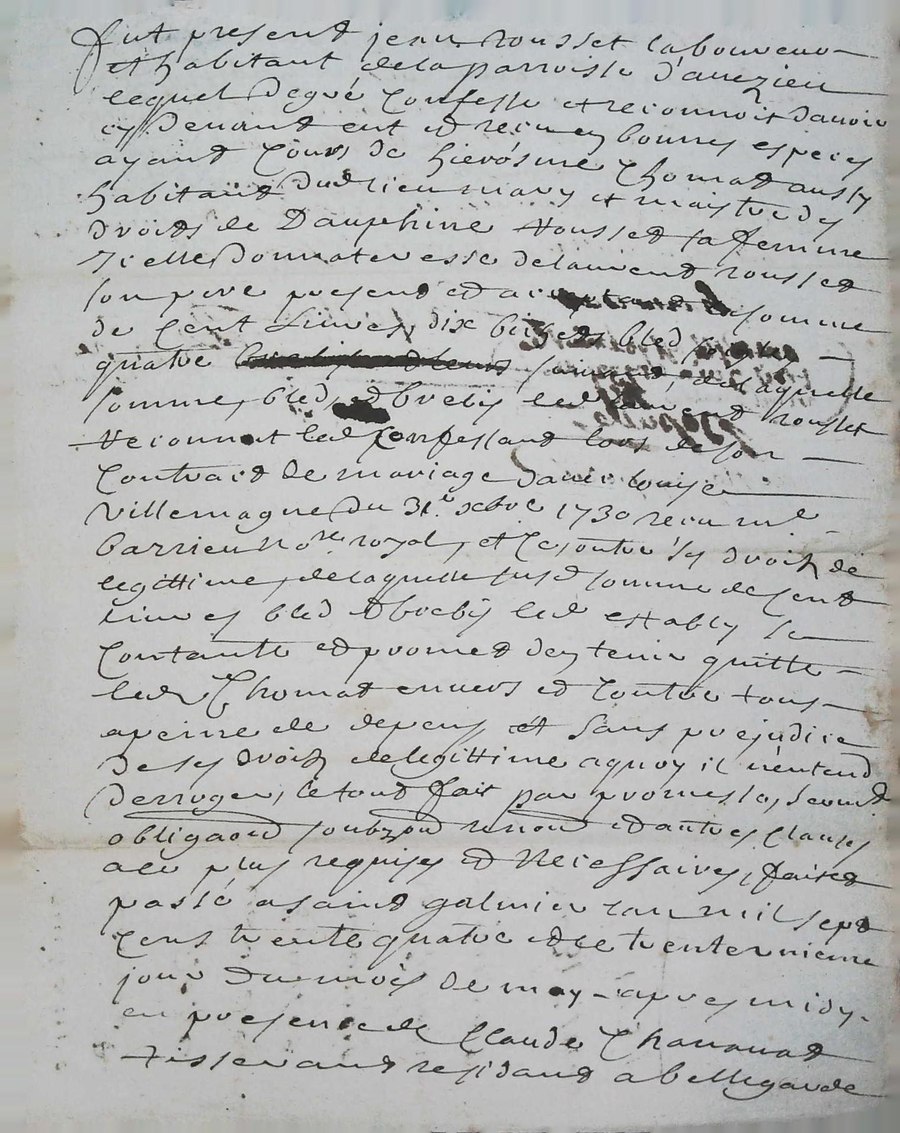 fut present jean rousset laboureur
et habitant de la parroisse d'aveizieu
lequel de gré confesse et reconnoit d'avoir
cy devant eut et receu en bonnes especes
ayant cours de hierosme Thomas aussy
habitant dud lieu mary et maistre des
droits de Dauphine Rousset sa femme
icelle donnateresse de laurent rousset
son pere present et acceptant la somme
de cent Livres, dix bichets bled
quatre suivant, de laquelle
somme, bled, et brebis led laurent rousset
reconnut led confessant lors de son
contract de mariage avec louise
villemagne du 31e xbre 1730 receu me
barrieu nore royal, et ce outre ses droits de
legittime, de laquelle susd somme de cent
livres bled et brebis led estably se
contante et promet d'en tenir quitte
led Thomas envers et contre tous
a peine de depens, et sans prejudice
de ses droits de legittime a quoy il n'entend
derroger, le tout fait par promesse, serment
obligaon soubzon renon et autres clauses
ace plus requises et Necessaires, fait et
passé a saint galmier l'an mil sept
cens trente quatre et le trente unieme
jour du mois de may apres midy
en presence de Claude Chavanat
tisserand residant a bellegarde